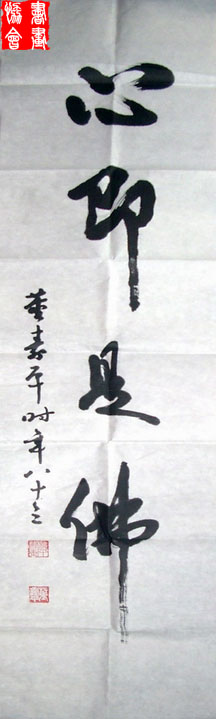 心即是佛
董寿平时年八十三
書畫
會